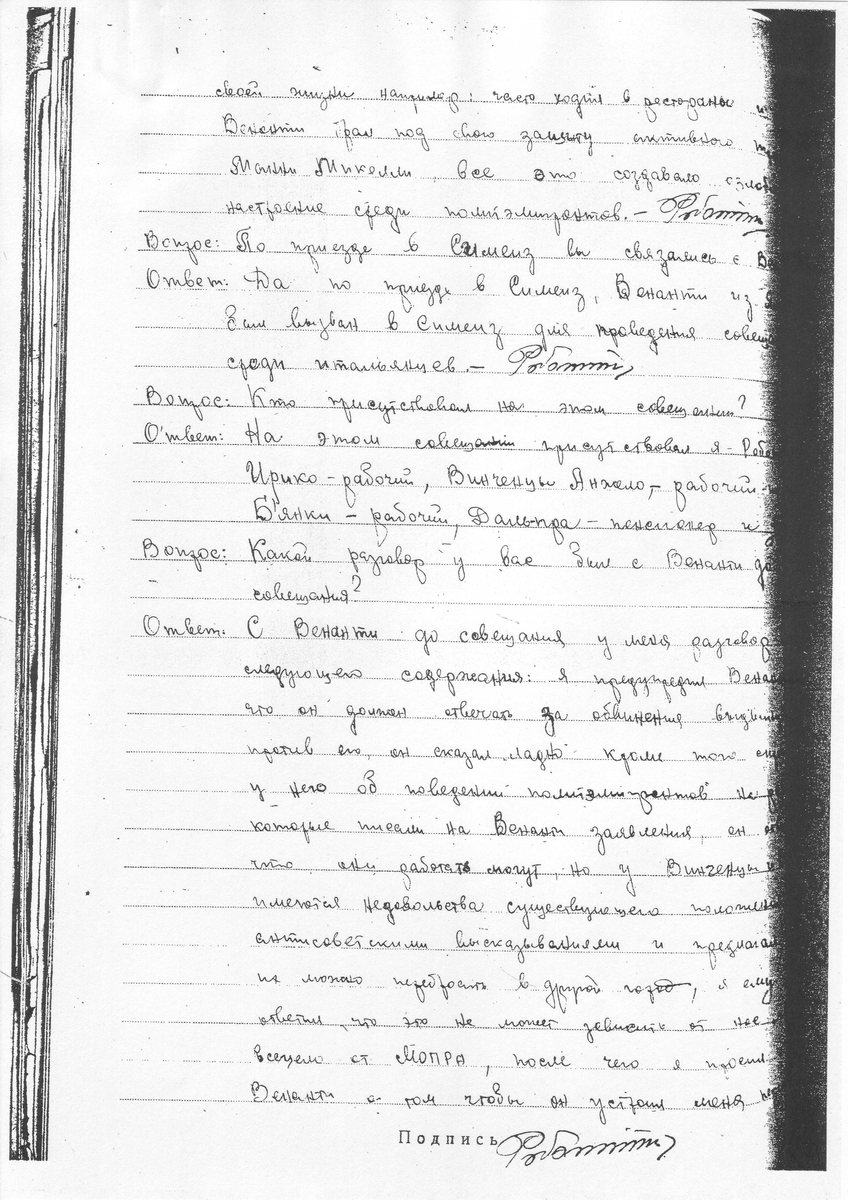 своей жизни например: часто ходил в рестораны и
Венанти брал под свою защиту активного
Манни Микелли, все это создавало
настроение среди политэмигрантов. — Роботти
Вопрос: По приезде в Симеиз вы связались с
Ответ: Да по приезде в Симеиз, Венанти из
был вызван в Симеиз для проведения совещ
среди итальянцев. — Роботти
Вопрос: Кто присутствовал на этом совещании?
Ответ: На этом совещании присутствовал я - Робо
Ирико - рабочий, Винченцы Анжело, - рабочий
Б'янки - рабочий, Даль-пра - пенсионер и
Вопрос: Какой разговор у вас был с Венанти до
совещания?
Ответ: С Венанти до совещания у меня разговор
следующего содержания: я предупредил Вена
что он должон отвечать за обвинения выдви
против его, он сказал ладно кроме того
у него об поведении политэмигрантов
которые писали на Венанти заявления, он
что они работать могут, но у Винченцы
имеются недовольства существующего положен
антисоветскими высказываниями и предлагал
их можно перебросить в другой город, я ему
ответил, что это не может зависить от нас
всецело от МОПРА, после чего я просил
Венанти о том чтобы он устроил меня
Подпись Роботти